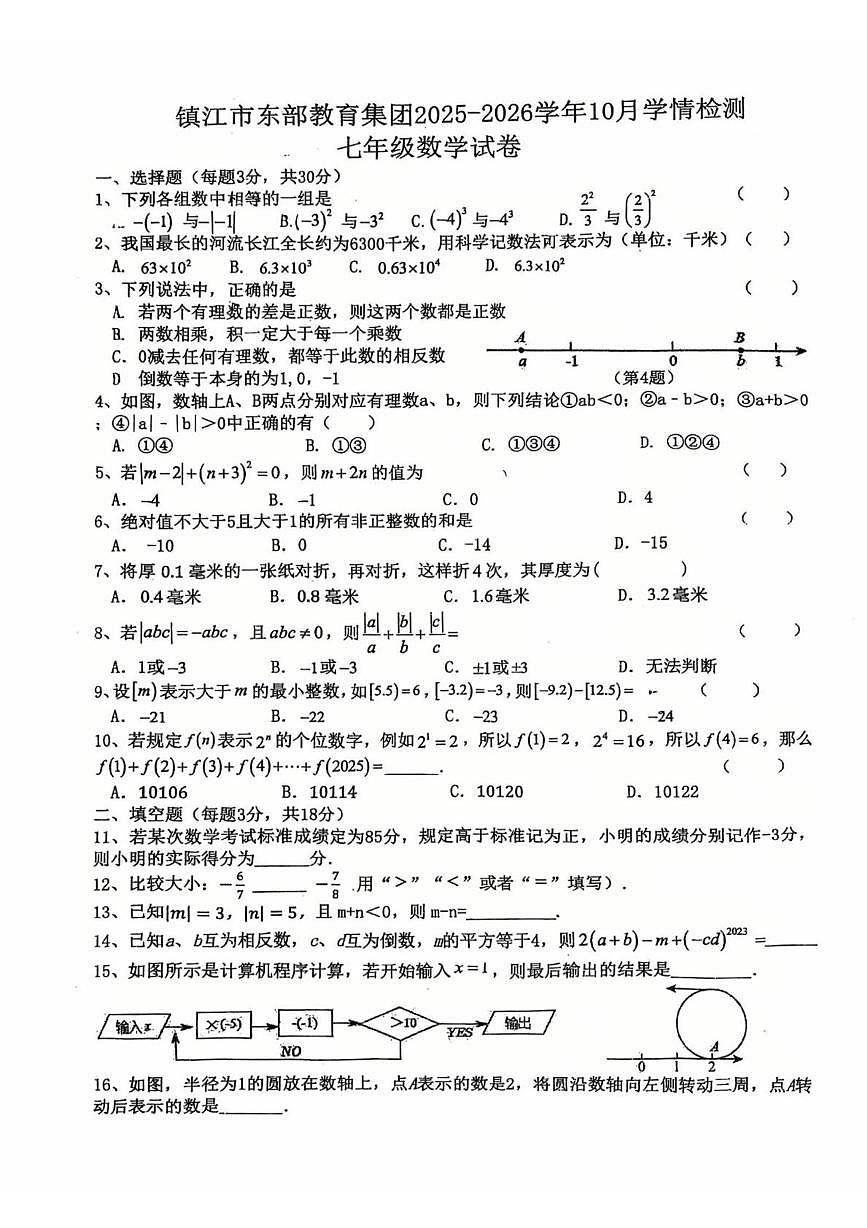 镇江市东部教育集团2025-2026学年10月学情检测
七年级数学试卷
一、选择题（每题3分，共30分）
1、下列各组数中相等的一组是 （ ）
-(-1) 与-|-1| B.(-3)² 与-3² C.(-4)³与-4³ D. 2²/3 与(2/3)²
2、我国最长的河流长江全长约为6300千米，用科学记数法可表示为（单位：千米）（ ）
A. 63×10² B. 6.3×10³ C. 0.63×10⁴ D. 6.3×10²
3、下列说法中，正确的是 （ ）
A. 若两个有理数的差是正数，则这两个数都是正数
B. 两数相乘，积一定大于每一个乘数
C. 0减去任何有理数，都等于此数的相反数
D 倒数等于本身的为1，0，-1
A B
a -1 0 b 1
（第4题）
4、如图，数轴上A、B两点分别对应有理数a、b，则下列结论①ab<0；②a-b>0；③a+b>0
；④|a|-|b|>0中正确的有（ ）
A. ①④ B. ①③ C. ①③④ D. ①②④
5、若|m-2|+(n+3)²=0，则m+2n的值为 （ ）
A. -4 B. -1 C. 0 D. 4
6、绝对值不大于5且大于1的所有非正整数的和是 （ ）
A. -10 B. 0 C. -14 D. -15
7、将厚 0.1 毫米的一张纸对折，再对折，这样折4次，其厚度为( )
A. 0.4毫米 B. 0.8 毫米 C. 1.6毫米 D. 3.2毫米
8、若|abc|=-abc，且abc≠0，则|a|/a+|b|/b+|c|/c= （ ）
A. 1或-3 B. -1或-3 C. ±1或±3 D. 无法判断
9、设[m)表示大于m的最小整数,如[5.5)=6，[-3.2)=-3，则[-9.2)-[12.5)= （ ）
A. -21 B. -22 C. -23 D. -24
10、若规定f(n)表示2ⁿ的个位数字，例如2¹=2，所以f(1)=2，2⁴=16，所以f(4)=6，那么
f(1)+f(2)+f(3)+f(4)+⋯+f(2025)=______. （ ）
A. 10106 B. 10114 C. 10120 D. 10122
二、填空题（每题3分，共18分）
11、若某次数学考试标准成绩定为85分，规定高于标准记为正，小明的成绩分别记作-3分，
则小明的实际得分为______分.
12、比较大小：-6/7 ______ -7/8 .用“>”“<”或者“=”填写）.
13、已知|m| = 3，|n| = 5，且 m+n<0，则 m-n=__________.
14、已知a、b互为相反数，c、d互为倒数，m的平方等于4，则2(a+b)-m+(-cd)²⁰²³ =______
15、如图所示是计算机程序计算，若开始输入x=1，则最后输出的结果是_________.
输入x ×(-5) -(-1) >10 YES 输出
NO
A
0 1 2
16、如图，半径为1的圆放在数轴上，点A表示的数是2，将圆沿数轴向左侧转动三周，点A转
动后表示的数是________.